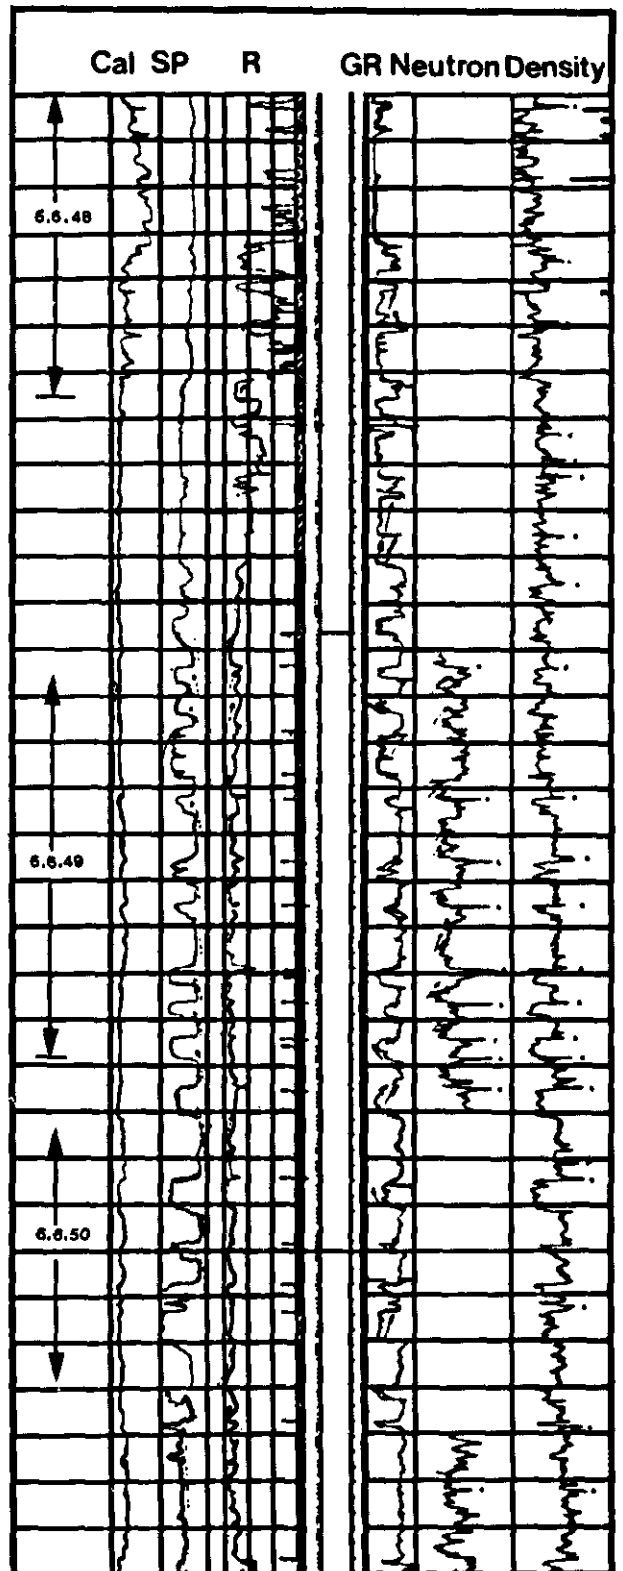 Cal SP R GR Neutron Density
6.6.48
6.6.49
6.6.50